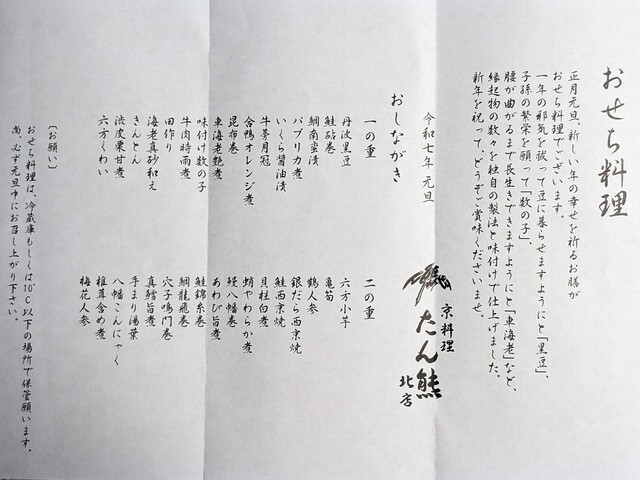 おせち料理
正月元旦、新しい年の幸せを祈るお膳が
おせち料理でございます。
一年の邪気を祓って豆に暮らせますようにと「黒豆」、
子孫の繁栄を願って「数の子」、
腰が曲がるまで長生きできますようにと「車海老」など、
縁起物の数々を独自の製法と味付けで仕上げました。
新年を祝って、どうぞご賞味くださいませ。
令和七年 元旦
京料理
たん熊
北店
おしながき
一の重
丹波黒豆
鮭砧巻
鯛南蛮漬
いくら醤油漬
パプリカ煮
牛蒡月冠
合鴨オレンジ煮
昆布巻
車海老艶煮
味付け数の子
牛肉時雨煮
田作り
海老真砂和え
きんとん
渋皮栗甘煮
六方くわい
二の重
六方小芋
亀筍
鶴人参
銀だら西京焼
鮭西京焼
貝柱白煮
蛸やわらか煮
鰻八幡巻
あわび旨煮
鮭錦糸巻
鯛龍飛巻
穴子鳴門巻
真鱈旨煮
手まり湯葉
八幡こんにゃく
椎茸含め煮
梅花人参
〔お願い〕
おせち料理は、冷蔵庫もしくは10℃以下の場所で保管願います。
尚、必ず元旦中にお召し上がり下さい。